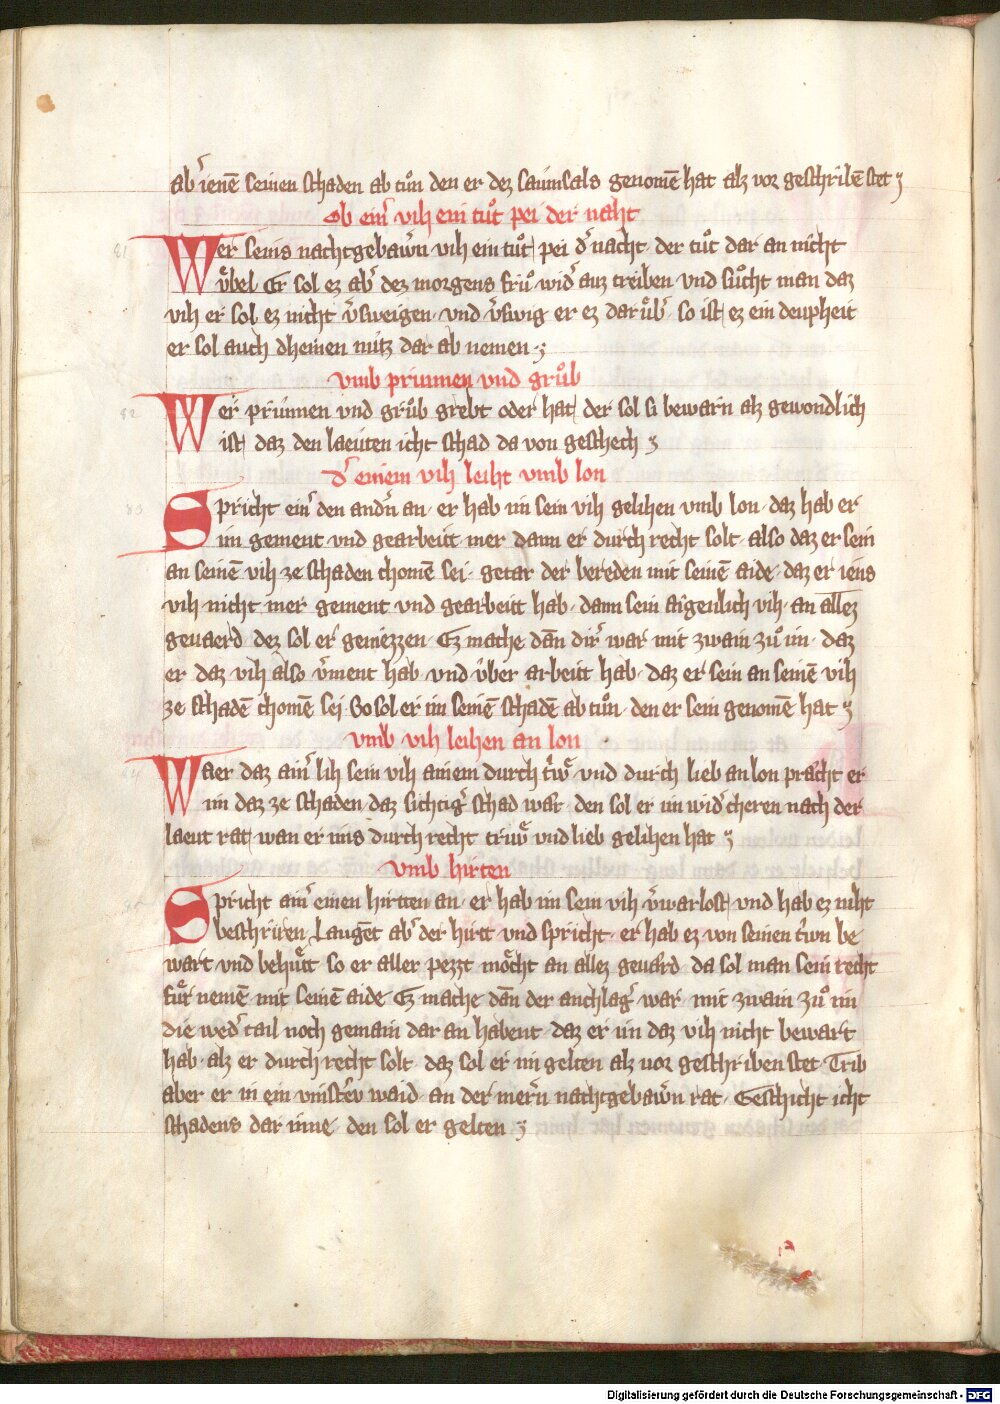 ab͛ ienē seinen schaden ab tůn den er dez saumsals genomē hat alz vor geschribē stet
Ob ein͛ vih ein tůt pei der naht
81 Wer seins nachtgebaw͛n vih ein tůt pei d͛ nacht · der tůt dar an nicht
v̊bel Er sol ez ab͛ dez morgens frů wid͛ auz treiben · vnd sůcht man daz
vih er sol ez nicht v͛sweigen · vnd v͛swig er ez darůb͛ so ist ez ein deupheit
er sol auch dheinen nutz dar ab nemen
vmb prunnen vnd grůb
82 Wer prunnen vnd grůb grebt oder hat der sol si bewarn alz gewondlich
ist daz den laeuten icht schad da von geschech
d͛ einem vih leiht vmb lon
83 Spricht ein͛ den and͛n an · er hab im sein vih gelihen vmb lon · daz hab er
im gement vnd gearbeitt mer dann er durch recht solt · also daz er sein
an seinē vih ze schaden chomē sei · getar der bereden mit seinē aide · daz er iens
vih nicht mer gement vnd gearbeitt hab · dann sein aigenlich vih · an allez
geuaerd dez sol er geniezzen · Ez mache dān dir͛ war mit zwain zů im · daz
er daz vih also v͛ment hab · vnd v̊ber arbeitt hab · daz er sein an seinē vih
ze schadē chomē sei · So sol er im seinē schadē ab tůn · den er sein genomē hat
vmb vih leihen an lon
84 Waer daz aim͛ lih sein vih ainem durch triẘ · vnd durch lieb an lon pracht er
im daz ze schaden · daz sichtig͛ schad war · den sol er im wid͛ cheren nach der
laeut rat wan er ims durch recht triẘ vnd lieb gelihen hat
vmb hirten
Spricht ain͛ einen hirtten an · er hab im sein vih v͛warlost · vnd hab ez niht
beschriren Laugēt ab͛ der hirtt vnd spricht · er hab ez von seinen triwn be
wart vnd behůtt so er aller pezzt mo̊cht an allez geuärd · da sol man sein recht
fůr nemē mit seinē aide Ez mache dān der anchlag͛ war · mit zwain zů im
die wed͛ tail noch gemain dar an habent · daz er im daz vih nicht bewart
hab · alz er durch recht solt · daz sol er im gelten alz vor geschriben stet · Trib
aber er in ein vinsterv waid · an der mer͛n nachtgebaw͛n rat · Geschicht icht
schadens dar inne · den sol er gelten
Digitalisierung gefördert durch die Deutsche Forschungsgemeinschaft - DFG